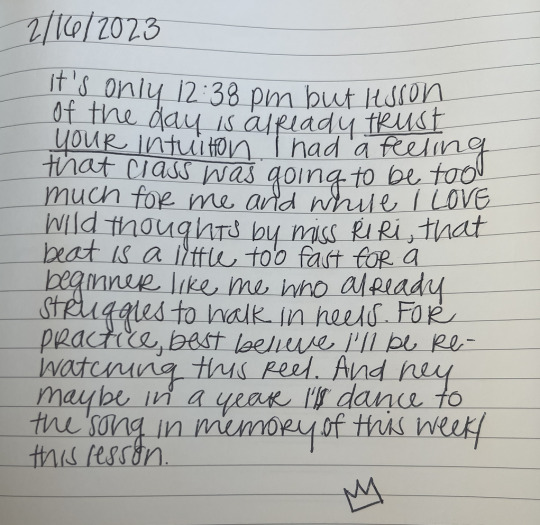 2/16/2023
it's only 12:38 pm but lesson
of the day is already trust
your intuition. I had a feeling
that class was going to be too
much for me and while I LOVE
wild thoughts by miss RiRi, that
beat is a little too fast for a
beginner like me who already
struggles to walk in heels. For
practice, best believe I'll be re-
watching this reel. And hey
maybe in a year I'll dance to
the song in memory of this week/
this lesson.